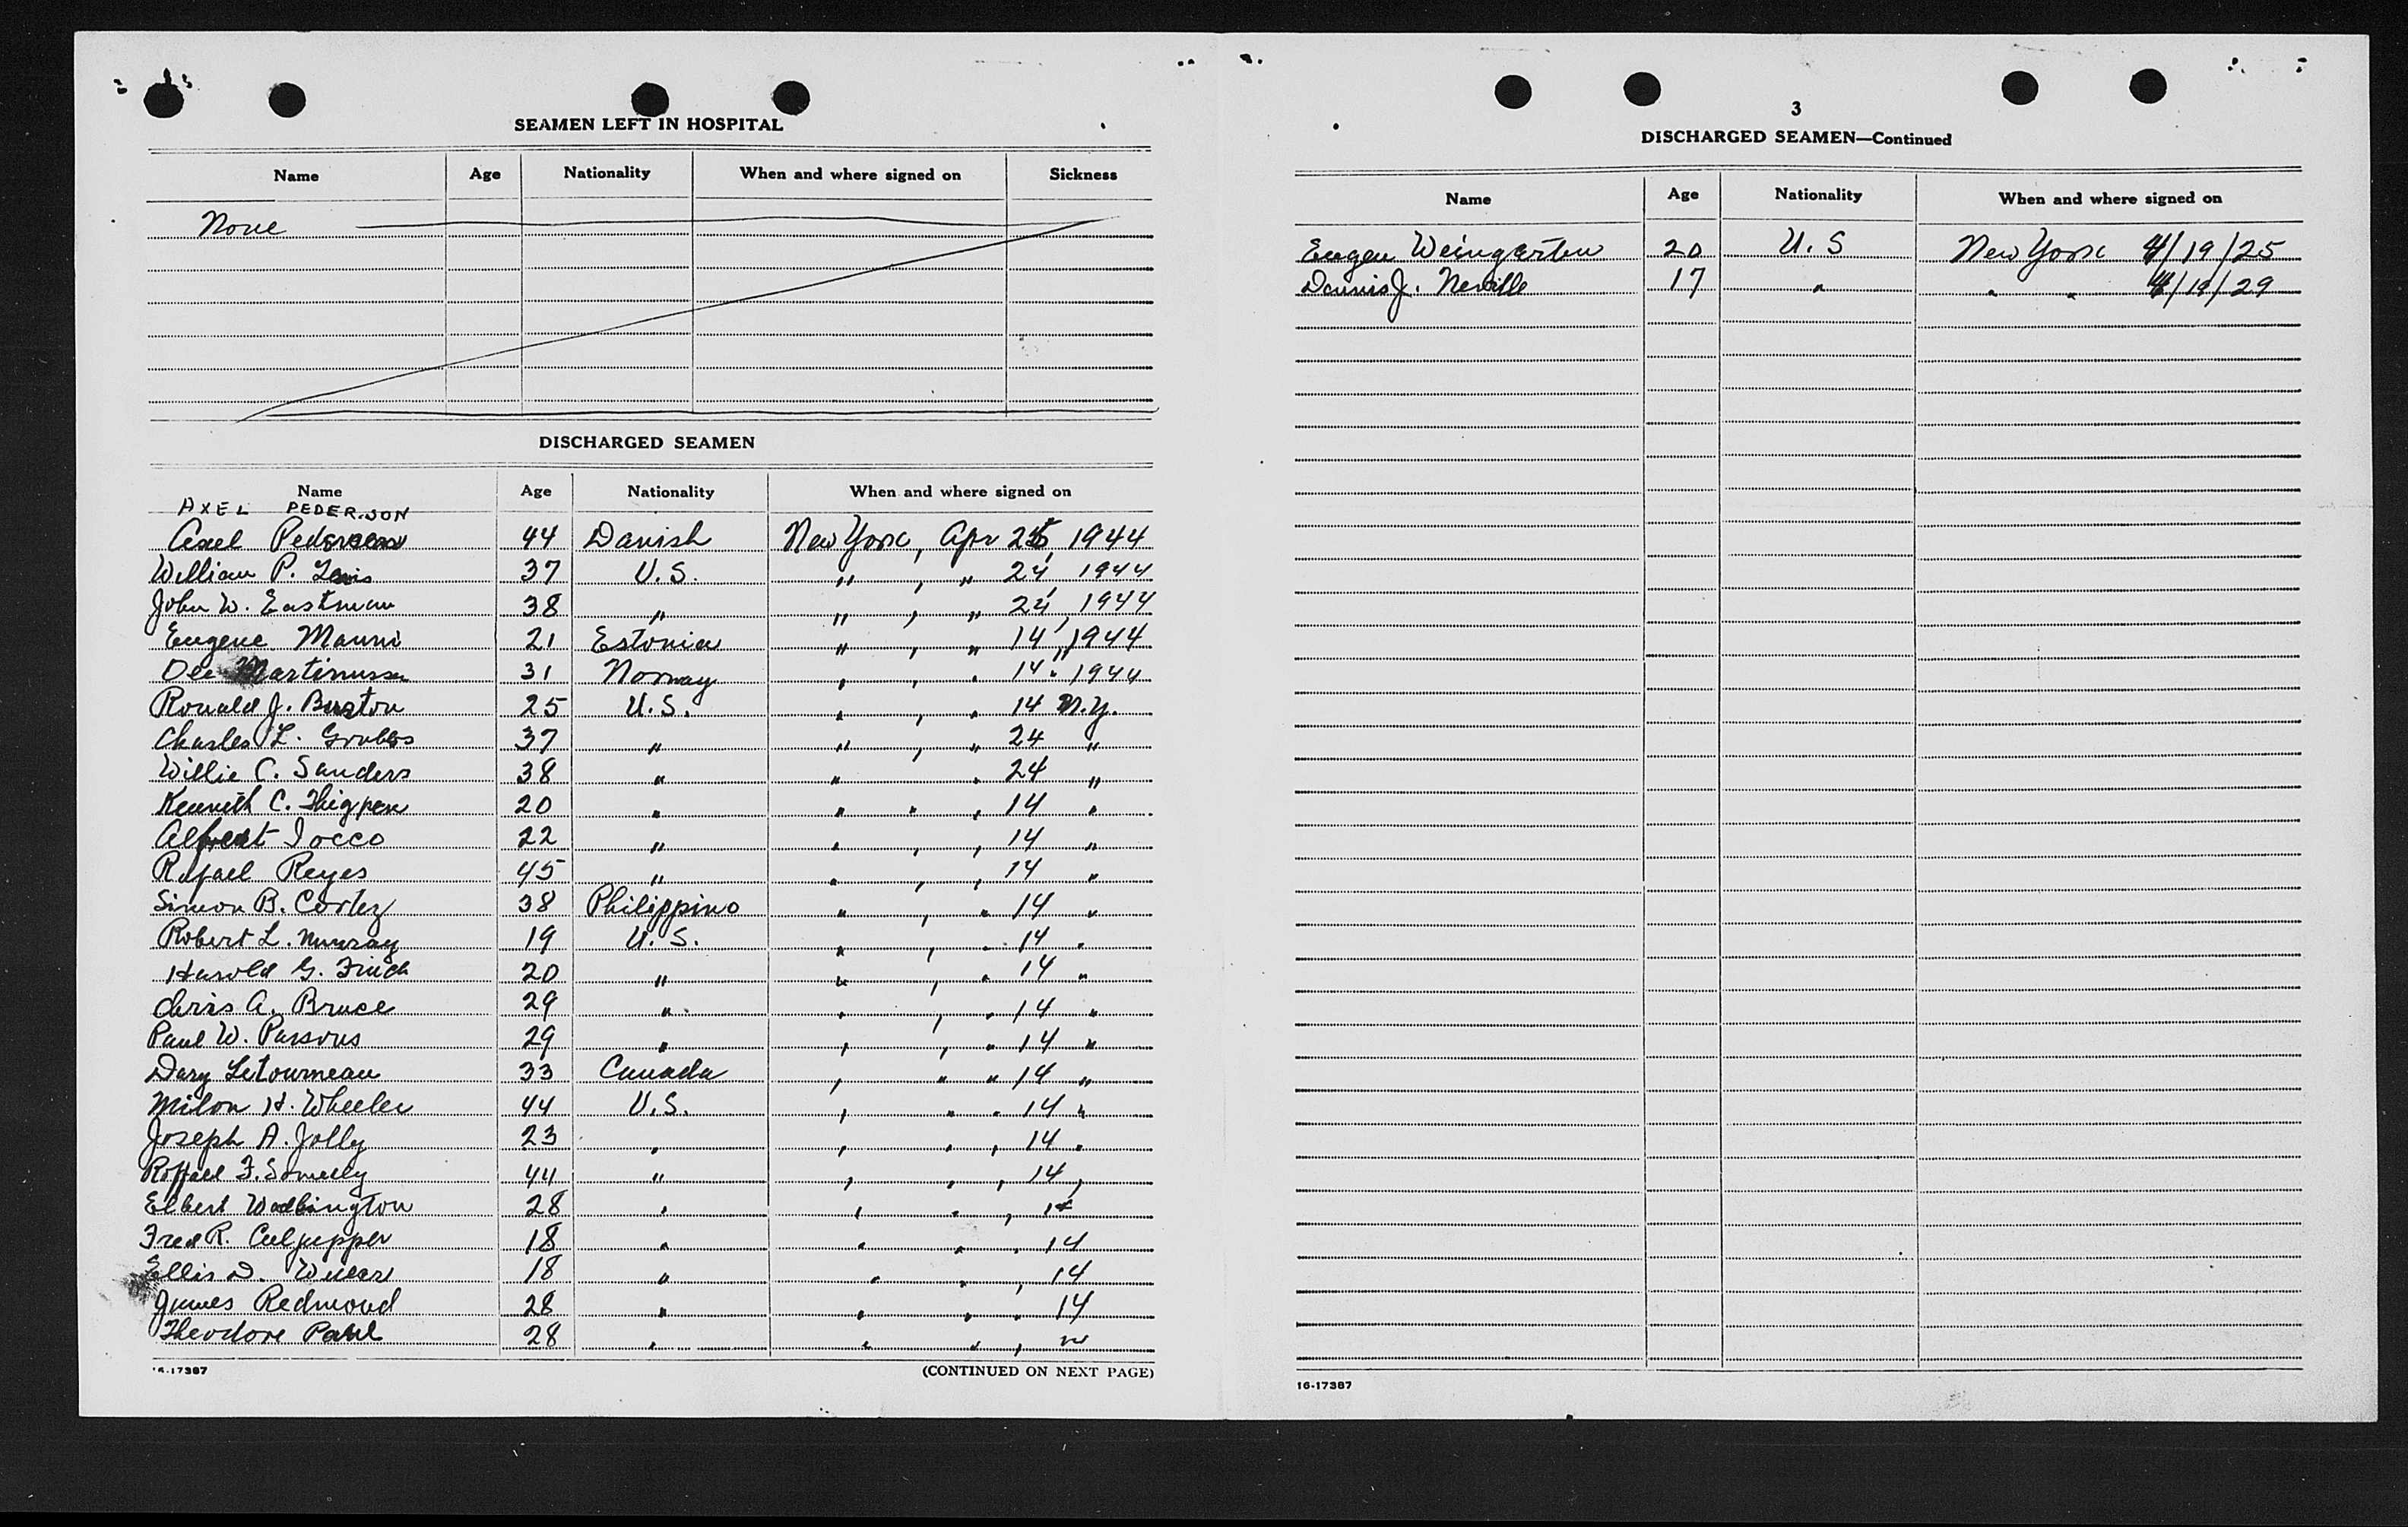 SEAMEN LEFT IN HOSPITAL
Name Age Nationality When and where signed on Sickness
None
DISCHARGED SEAMEN
Name Age Nationality When and where signed on
AXEL PEDERSON
Axel Pederson 44 Danish New York, Apr 25, 1944
William P. Lewis 37 U.S. " , " 24, 1944
John W. Eastman 38 " " , " 24, 1944
Eugene Mauni 21 Estonia " , " 14, 1944
Ole Martinussen 31 Norway " , " 14 " 1944
Ronald J. Buxton 25 U.S. " , " 14 N.Y.
Charles L. Grubbs 37 " " , " 24 "
Willie C. Sanders 38 " " " 24 "
Kenneth C. Thigpen 20 " " " , 14 "
Iocco 22 " " , , 14 "
Rafael Reyes 45 " " , , 14 "
Simon B. Cortez 38 Philippino " , " 14 "
Robert L. Murray 19 U.S. " , " 14 "
Harold G. Finch 20 " " , " 14 "
Chris A. Bruce 29 " " , " 14 "
Paul W. Parsons 29 " " , " 14 "
Dary Letourneau 33 Canada " " " 14 "
Milon H. Wheeler 44 U.S. " " " 14 "
Joseph A. Jolly 23 " " " " 14 "
F. 44 " " " " 14 "
Elbert 28 " " " " 14
Fred R. Culpepper 18 " " " " 14
Ellis D. 18 " " " " 14
James Redmond 28 " " " " 14
Theodore Pahl 28 " " " " "
16-17387 (CONTINUED ON NEXT PAGE)
3
DISCHARGED SEAMEN—Continued
Name Age Nationality When and where signed on
Eugen Weingarten 20 U.S New York 4/19/25
Dennis J. Neville 17 " " " 4/19/29
16-17387